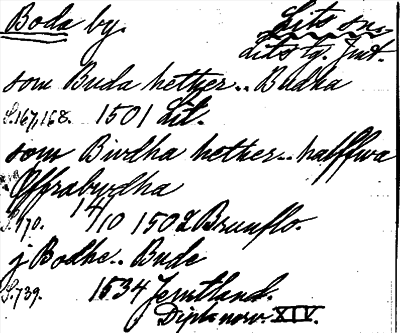 Boda by. Lits sn.
Lits tg. Jmt.
som Buda hether.. Budha
S.167,168. 1501 Lit.
som Bwdha hether.. halffwa
Offrabwdha
S.170. 14/10 1502 Brunflo.
j Bodhe.. Bude
S.739. 1534 Jemtland.
Dipl. norv. XIV.